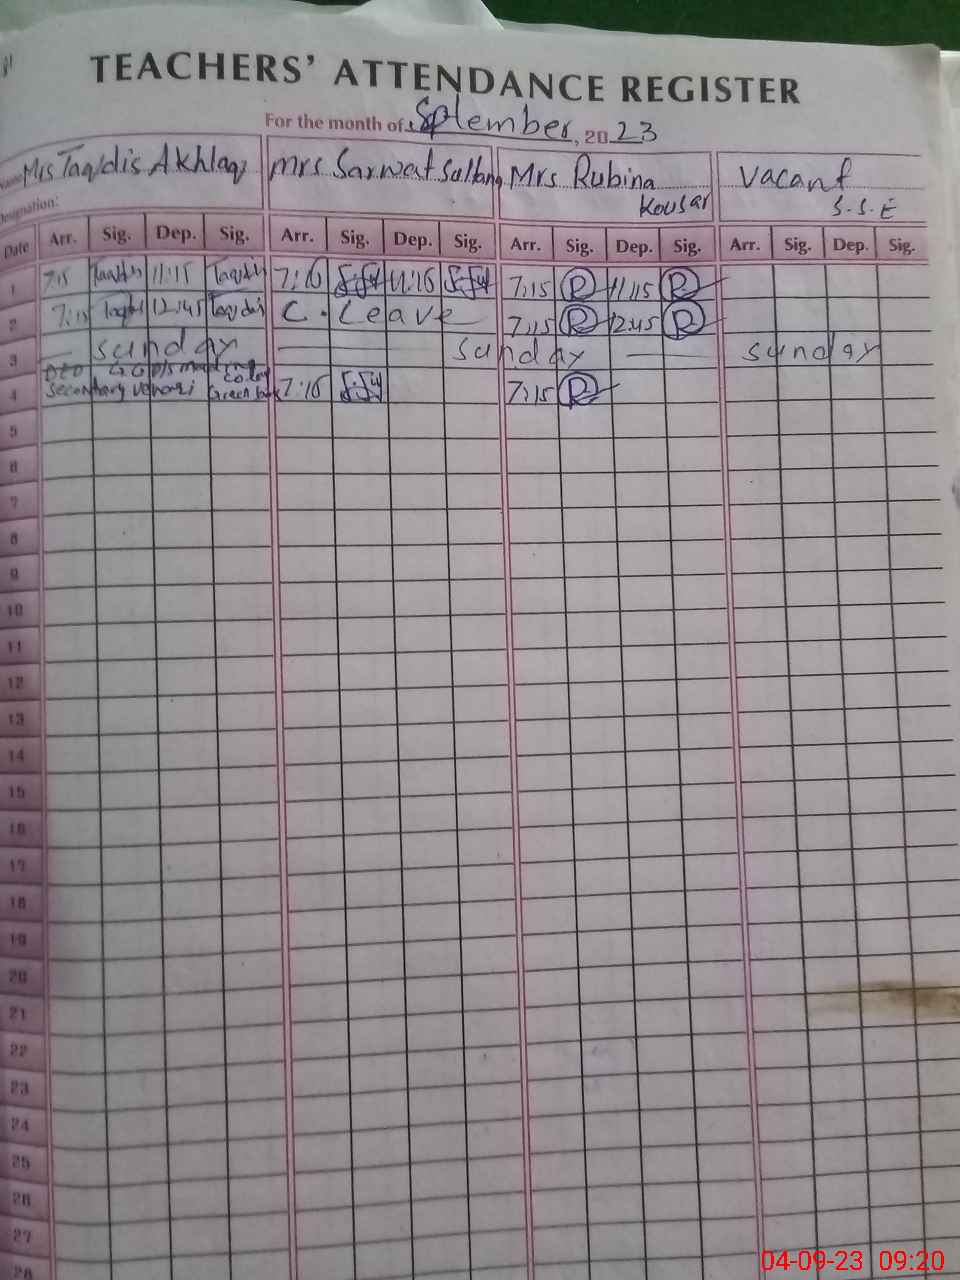 TEACHERS' ATTENDANCE REGISTER
For the month of September, 2023
Name Mrs Taqdis Akhlaq mrs Sarwat Sultana Mrs Rubina Kousar Vacant S.S.E
Designation:
Date Arr. Sig. Dep. Sig. Arr. Sig. Dep. Sig. Arr. Sig. Dep. Sig. Arr. Sig. Dep. Sig.
1 7:15 Taqdis 11:15 Taqdis 7:16 11:16 7:15 R 11:15 R
2 7:15 Taqdis 12:45 Taqdis C. Leave 7:15 R 12:45 R
3 Sunday Sunday Sunday
4 DEO Secondary 7:16 7:15 R
5
6
7
8
9
10
11
12
13
14
15
16
17
18
19
20
21
22
23
24
25
26
27
28
04-09-23 09:20